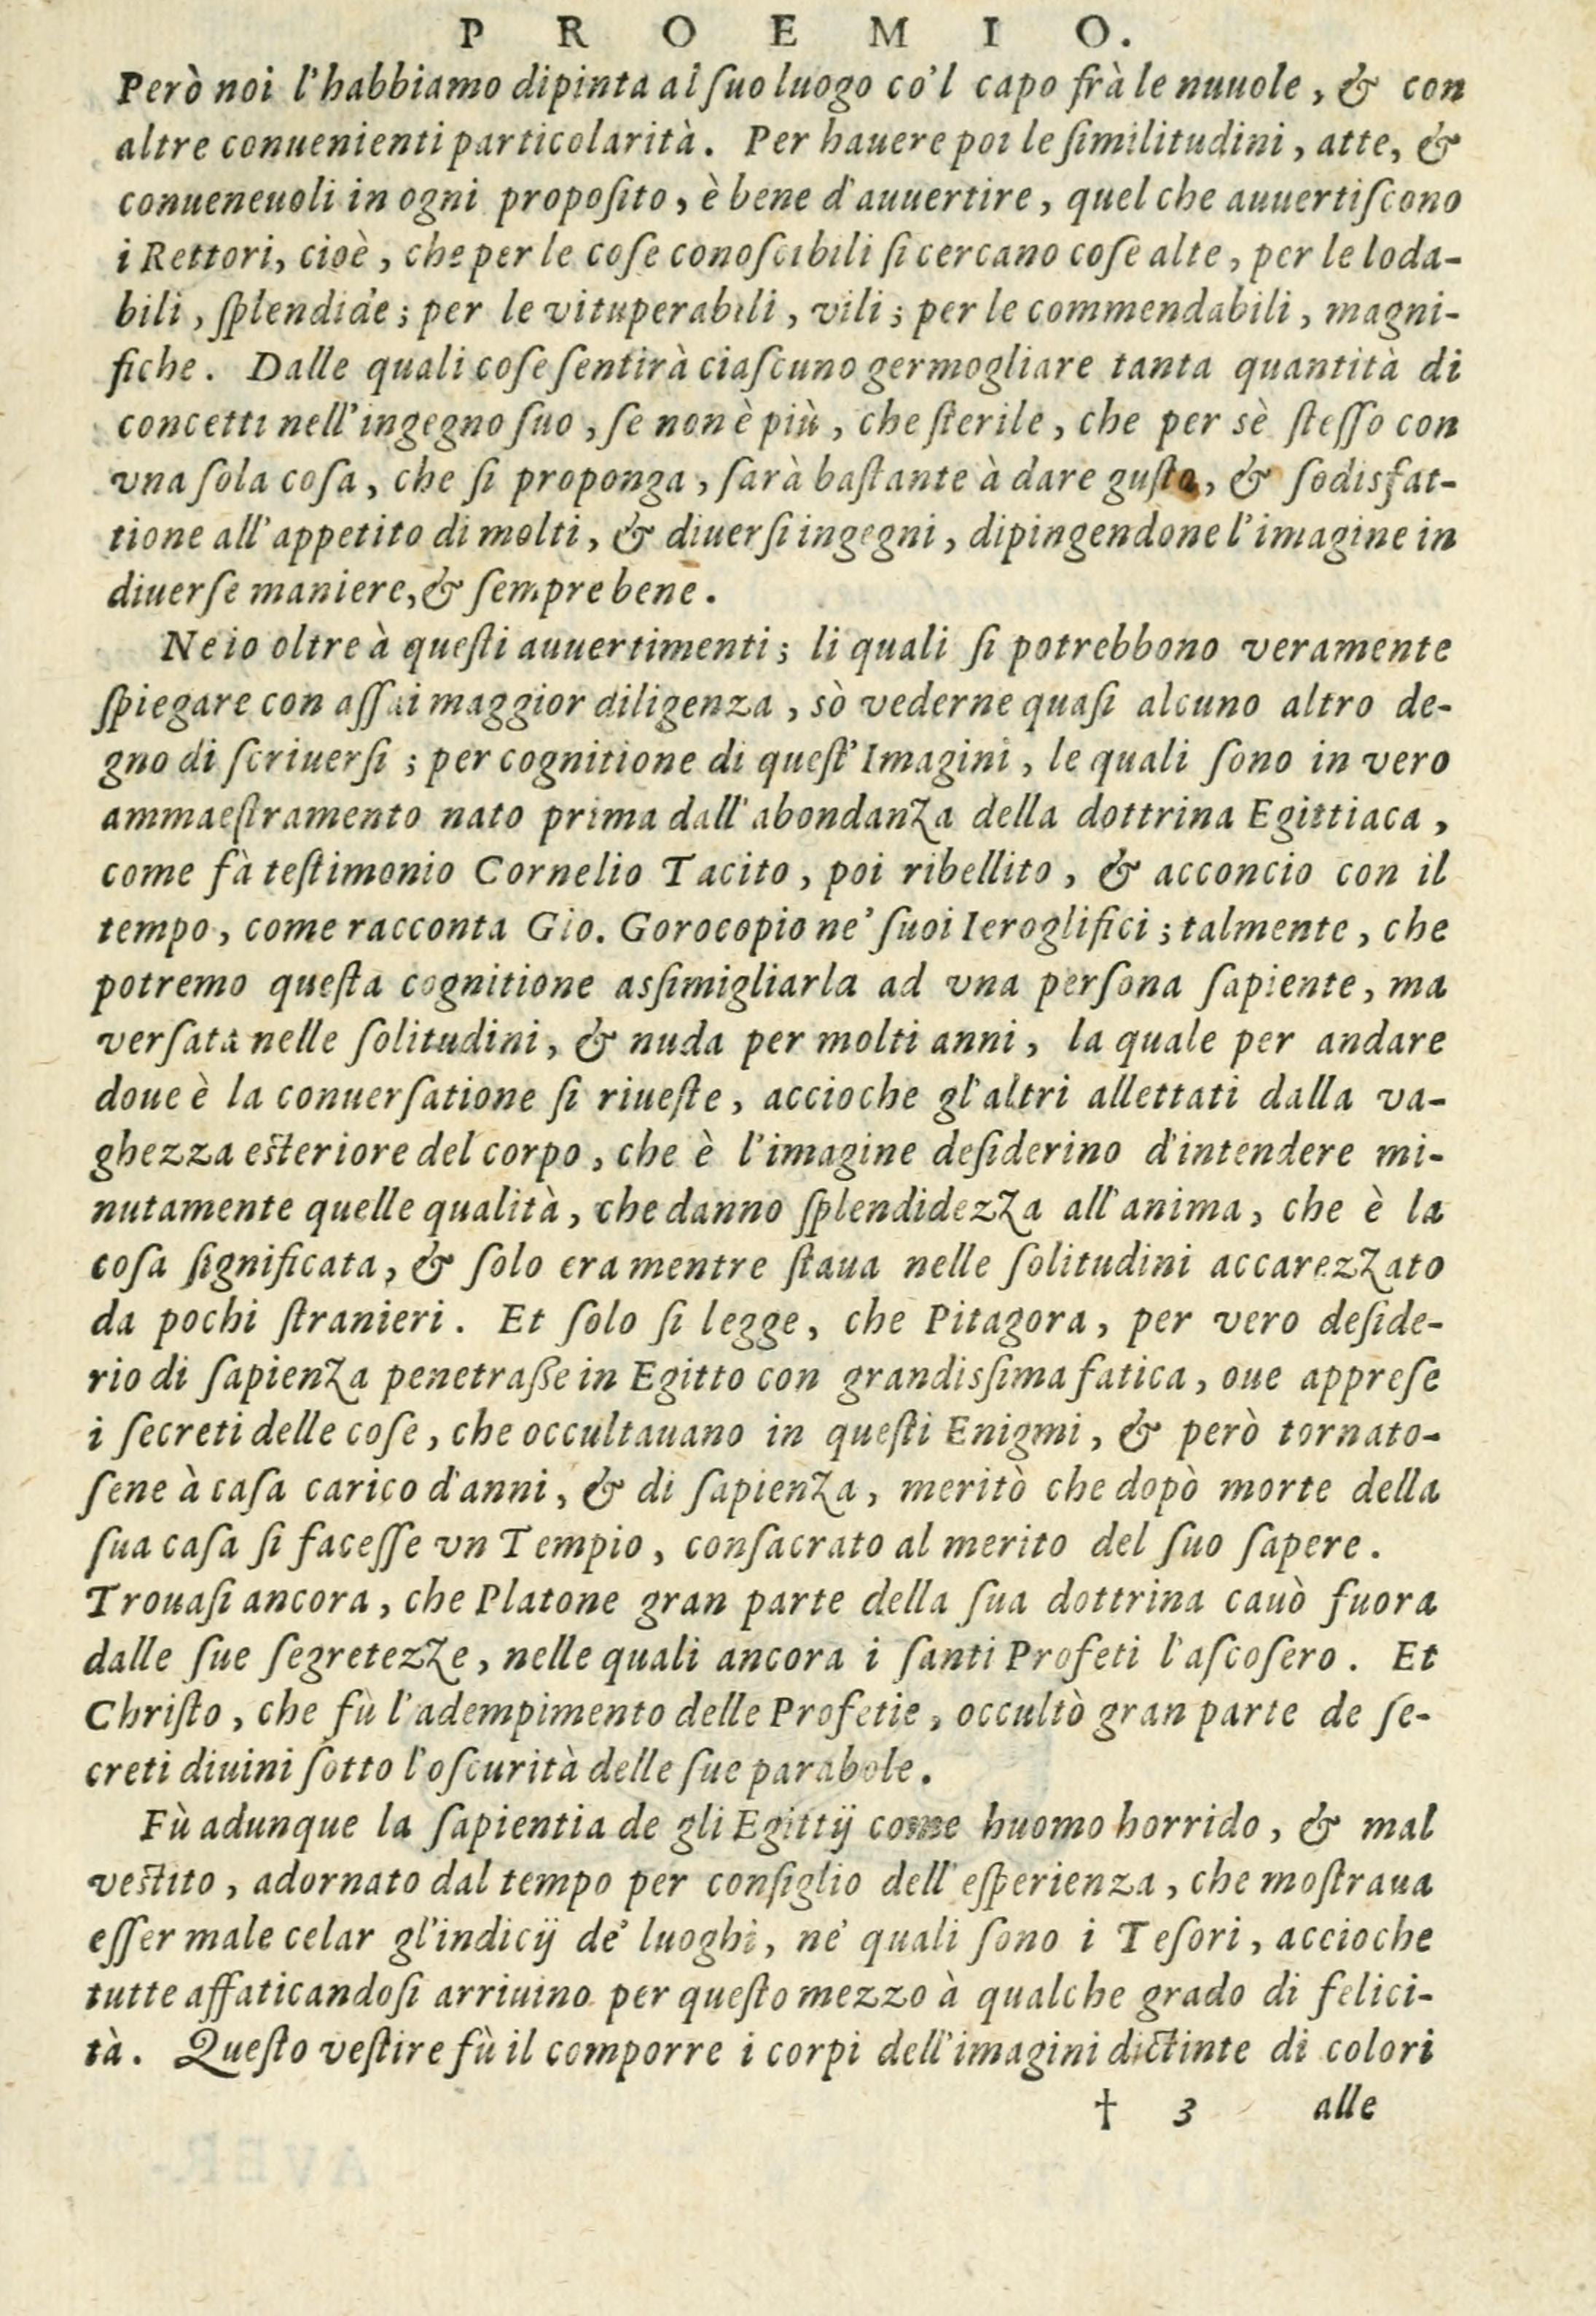 P R O E M I O.
Però noi l'habbiamo dipinta al ſuo luogo co'l capo frà le nuuole, & con
altre conuenienti particolarità. Per hauere poi le ſimilitudini, atte, &
conueneuoli in ogni propoſito, è bene d'auuertire, quel che auuertiſcono
i Rettori, cioè, che per le coſe conoſcibili ſi cercano coſe alte, per le loda-
bili, ſplendide; per le vituperabili, vili; per le commendabili, magni-
fiche. Dalle quali coſe ſentirà ciaſcuno germogliare tanta quantità di
concetti nell'ingegno ſuo, ſe non è più, che ſterile, che per sè ſteſſo con
vna ſola coſa, che ſi proponga, ſarà baſtante à dare guſto, & ſodisfat-
tione all'appetito di molti, & diuerſi ingegni, dipingendone l'imagine in
diuerſe maniere, & ſempre bene.
Ne io oltre à queſti auuertimenti; li quali ſi potrebbono veramente
ſpiegare con aſſai maggior diligenza, sò vederne quaſi alcuno altro de-
gno di ſcriuerſi; per cognitione di queſt'Imagini, le quali ſono in vero
ammaeſtramento nato prima dall'abondanza della dottrina Egittiaca,
come fà teſtimonio Cornelio Tacito, poi ribellito, & acconcio con il
tempo, come racconta Gio. Gorocopio ne' ſuoi Ieroglifici; talmente, che
potremo queſta cognitione asſimigliarla ad vna perſona ſapiente, ma
verſata nelle ſolitudini, & nuda per molti anni, la quale per andare
doue è la conuerſatione ſi riueſte, accioche gl'altri allettati dalla va-
ghezza eſteriore del corpo, che è l'imagine deſiderino d'intendere mi-
nutamente quelle qualità, che danno ſplendidezza all'anima, che è la
coſa ſignificata, & ſolo era mentre ſtaua nelle ſolitudini accarezzato
da pochi ſtranieri. Et ſolo ſi legge, che Pitagora, per vero deſide-
rio di ſapienza penetraße in Egitto con grandisſima fatica, oue appreſe
i ſecreti delle coſe, che occultauano in queſti Enigmi, & però tornato-
ſene à caſa carico d'anni, & di ſapienza, meritò che dopò morte della
ſua caſa ſi faceſſe vn Tempio, conſacrato al merito del ſuo ſapere.
Trouaſi ancora, che Platone gran parte della ſua dottrina cauò fuora
dalle ſue ſegretezze, nelle quali ancora i ſanti Profeti l'aſcoſero. Et
Chriſto, che fù l'adempimento delle Profetie, occultò gran parte de ſe-
creti diuini ſotto l'oſcurità delle ſue parabole.
Fù adunque la ſapientia de gli Egittij come huomo horrido, & mal
veſtito, adornato dal tempo per conſiglio dell'eſperienza, che moſtraua
eſſer male celar gl'indicij de' luoghi, ne' quali ſono i Teſori, accioche
tutte affaticandoſi arriuino per queſto mezzo à qualche grado di felici-
tà. Queſto veſtire fù il comporre i corpi dell'imagini dictinte di colori
† 3 alle